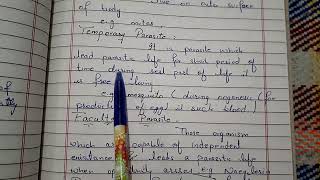 on outer surface
of body
e.g mites.
Temporary Parasite :
It is parasite which
lead parasitic life for short period of
time during rest part of life it
is free living
e.g mosquito (during oogenesis (for
production of eggs) it suck blood.
Facultative Parasite
Those organism
which are capable of independent
existance leads a parasitic life
when opportunity arises e.g Naegleria